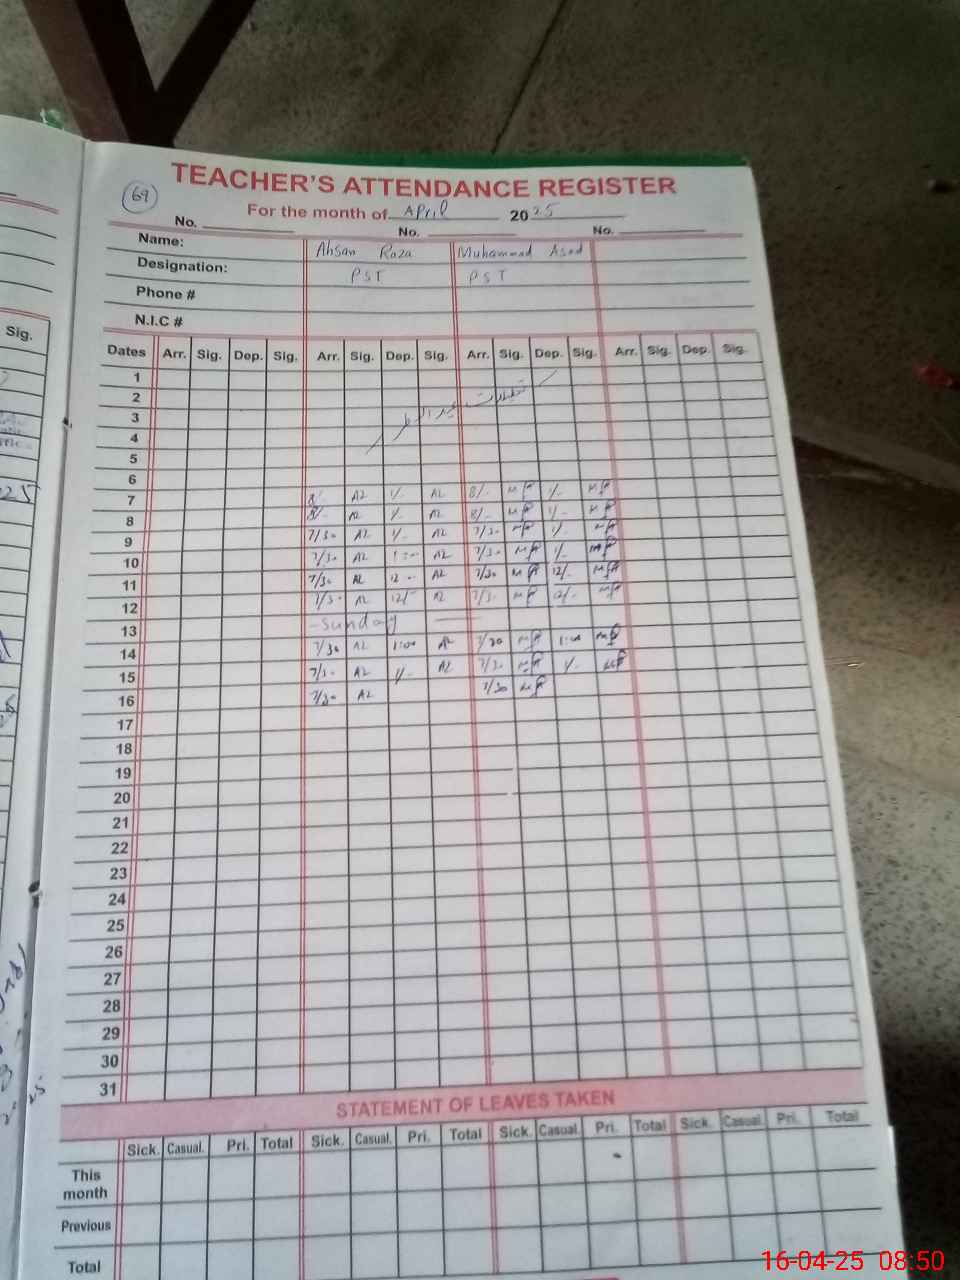 TEACHER'S ATTENDANCE REGISTER
69
For the month of April 2025
No. No. No.
Name: Ahsan Raza Muhammad Asad
Designation: PST PST
Phone #
N.I.C #
Sig. Dates Arr. Sig. Dep. Sig. Arr. Sig. Dep. Sig. Arr. Sig. Dep. Sig. Arr. Sig. Dep. Sig.
1
2
3 تعطیلات عید الفطر
4
5
6
7 8/- AR 1/- AR 8/- 1/-
8 8/- AR 1/- AR 8/- 1/-
9 7/30 AR 1/- AR 7/30 1/-
10 7/30 AR 1:00 AR 7/30 1/-
11 7/30 AR 12:00 AR 7/30 12/-
12 7/30 AR 12/- AR 7/30 12/-
13 - Sunday
14 7/30 AR 1:00 AR 7/30 1:00
15 7/30 AR 1/- AR 7/30 1/-
16 7/30 AR 7/30
17
18
19
20
21
22
23
24
25
26
27
28
29
30
31
STATEMENT OF LEAVES TAKEN
Sick. Casual. Pri. Total Sick. Casual. Pri. Total Sick. Casual. Pri. Total Sick. Casual. Pri. Total
This month
Previous
Total
16-04-25 08:50